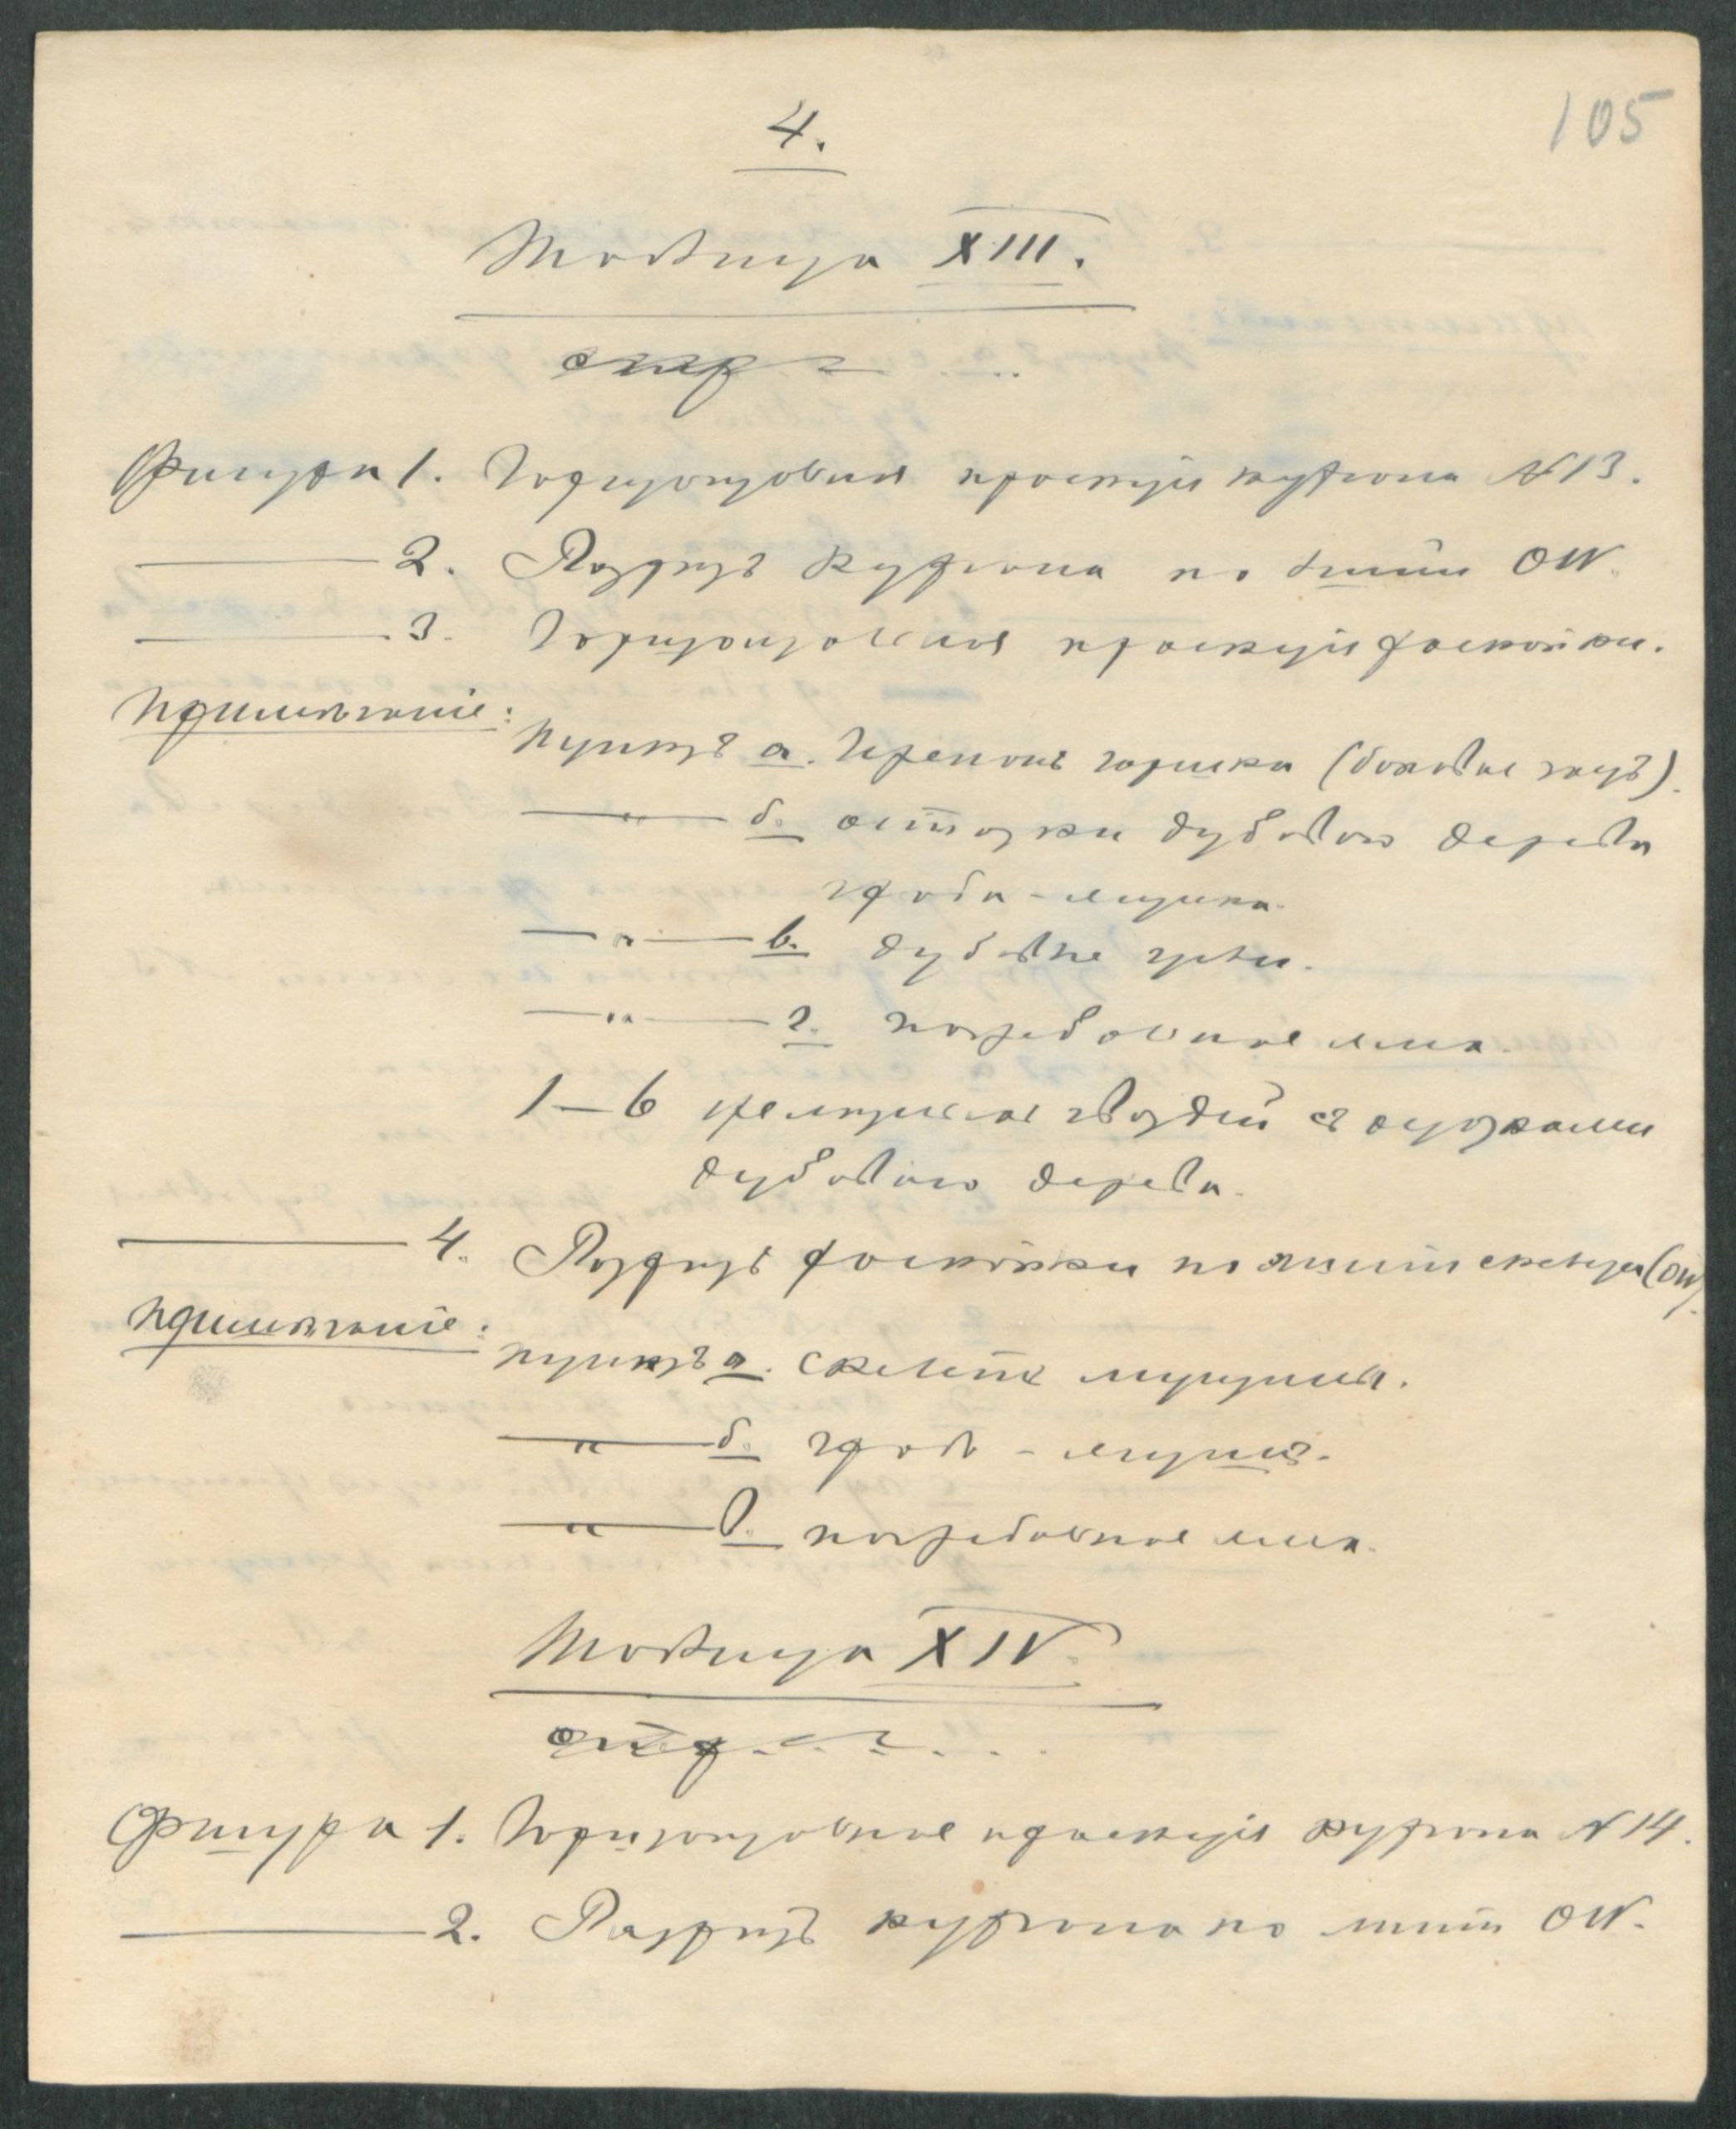 4.
105
Таблица XIII.
Фигура 1. Горизонтальная проекція кургана №13.
2. Разрѣзъ кургана по линіи OW.
3. Горизонтальная проекція раскопки.
Примѣчаніе:
пунктъ а. Черепокъ горшка
" б. остатки дубоваго дерева
гроба-ящика.
" в.
" г. погребальная яма.
1–6 гвоздей съ кусками
дубоваго дерева.
4. Разрѣзъ раскопки по линіи скелета (OW).
Примѣчаніе:
пунктъ а. скелетъ мущины.
" б. гробъ-ящикъ.
" в. погребальная яма.
Таблица XIV.
Фигура 1. Горизонтальная проекція кургана №14.
2. Разрѣзъ кургана по линіи OW.